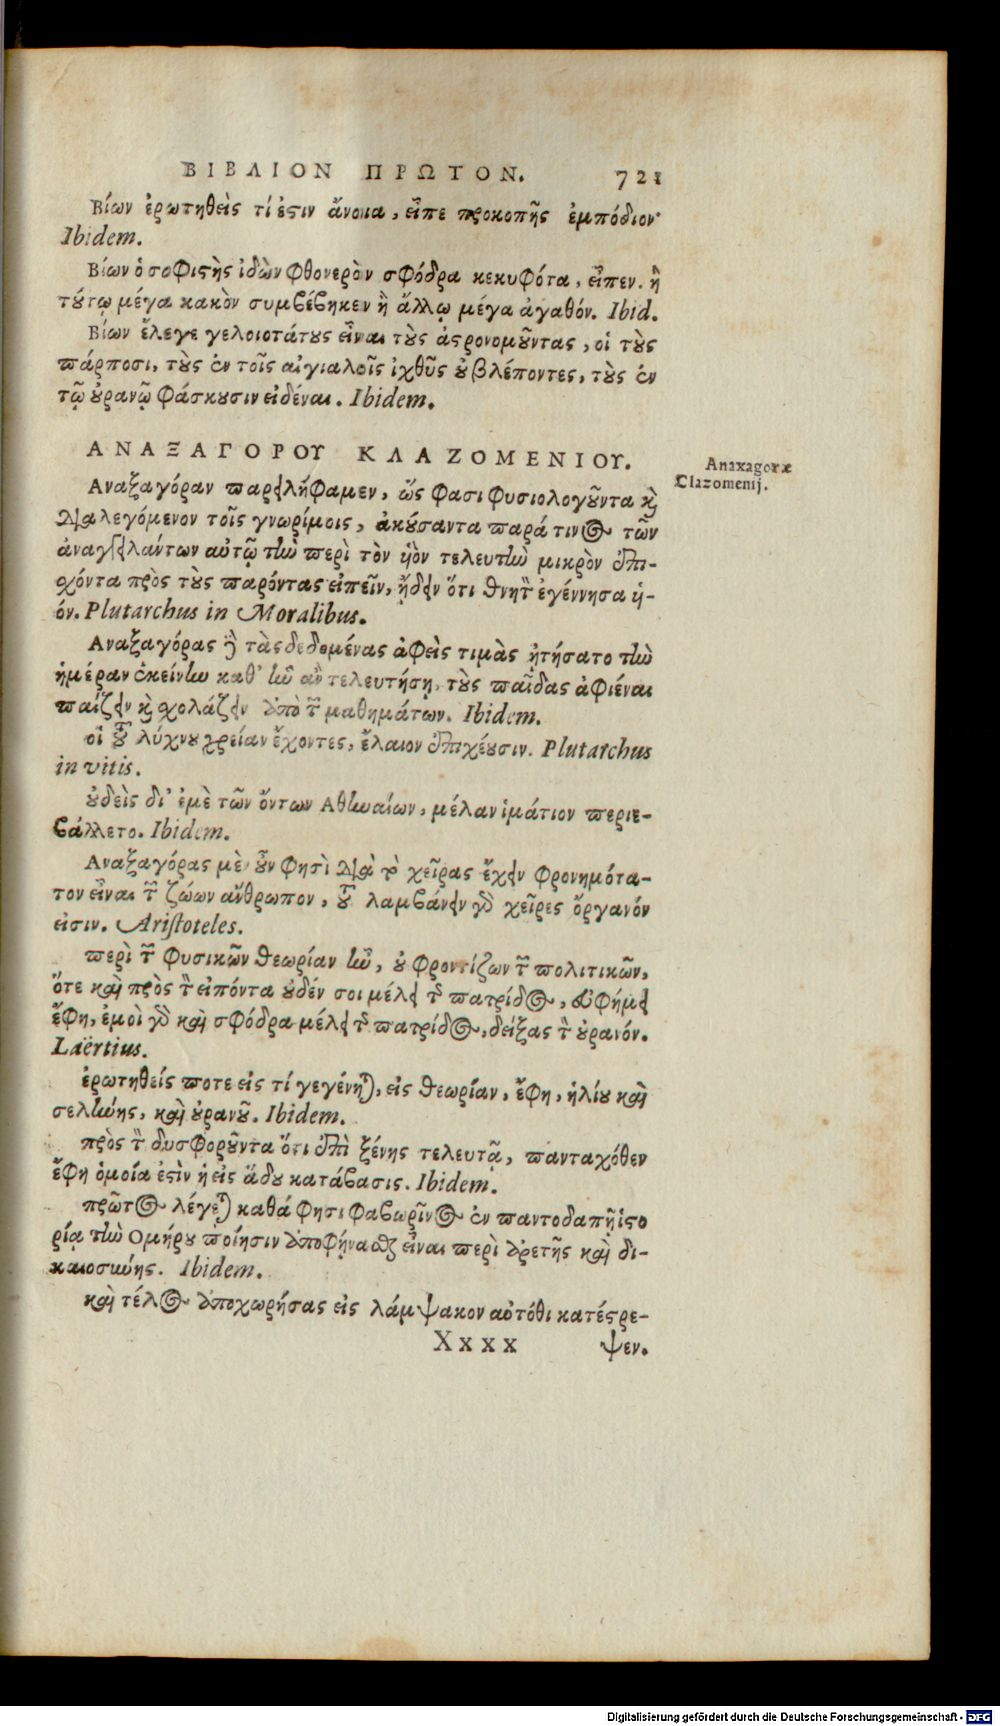 ΒΙΒΛΙΟΝ ΠΡΩΤΟΝ. 721
Βίων ἐρωτηθεὶς τί ἐϛιν ἄνοια, εἶπε προκοπῆς ἐμπόδιον·
Ibidem.
Βίων ὁ σοφιϛὴς ἰδὼν φθονερὸν σφόδρα κεκυφότα, εἶπεν. ἢ
τούτῳ μέγα κακὸν συμβέβηκεν ἢ ἄλλῳ μέγα ἀγαθόν. Ibid.
Βίων ἔλεγε γελοιοτάτους εἶναι τοὺς ἀϛρονομοῦντας, οἱ τοὺς
πάρποσι, τοὺς ἐν τοῖς αἰγιαλοῖς ἰχθῦς οὐ βλέποντες, τοὺς ἐν
τῷ οὐρανῷ φάσκουσιν εἰδέναι. Ibidem.
ΑΝΑΞΑΓΟΡΟΥ ΚΛΑΖΟΜΕΝΙΟΥ.
Anaxagoræ
Clazomenij.
Αναξαγόραν παρειλήφαμεν, ὥς φασι φυσιολογοῦντα καὶ
διαλεγόμενον τοῖς γνωρίμοις, ἀκούσαντα παρά τινος τῶν
ἀναγγειλάντων αὐτῷ τὴν περὶ τὸν ὑὸν τελευτὴν μικρὸν ἐπι-
σχόντα πρὸς τοὺς παρόντας εἰπεῖν, ᾔδειν ὅτι θνητὸν ἐγέννησα ὑ-
όν. Plutarchus in Moralibus.
Αναξαγόρας δὲ τὰς δεδομένας ἀφεὶς τιμὰς ᾐτήσατο τὴν
ἡμέραν ἐκείνην καθ' ἣν ἂν τελευτήσῃ, τοὺς παῖδας ἀφιέναι
παίζειν καὶ σχολάζειν ἀπὸ τῶν μαθημάτων. Ibidem.
οἱ τοῦ λύχνου χρείαν ἔχοντες, ἔλαιον ἐπιχέουσιν. Plutarchus
in vitis.
οὐδεὶς δι' ἐμὲ τῶν ὄντων Αθηναίων, μέλαν ἱμάτιον περιε-
βάλλετο. Ibidem.
Αναξαγόρας μὲν οὖν φησὶ διὰ τὸ χεῖρας ἔχειν φρονημότα-
τον εἶναι τῶν ζώων ἄνθρωπον, τοῦ λαμβάνειν γὰρ χεῖρες ὄργανόν
εἰσιν. Aristoteles.
περὶ τῶν φυσικῶν θεωρίαν ἦν, οὐ φροντίζων τῶν πολιτικῶν,
ὅτε καὶ πρὸς τὸν εἰπόντα οὐδέν σοι μέλει τῆς πατρίδος, εὐφήμει
ἔφη, ἐμοὶ γὰρ καὶ σφόδρα μέλει τῆς πατρίδος, δείξας τὸν οὐρανόν.
Laërtius.
ἐρωτηθείς ποτε εἰς τί γεγένηται, εἰς θεωρίαν, ἔφη, ἡλίου καὶ
σελήνης, καὶ οὐρανοῦ. Ibidem.
πρὸς τὸν δυσφοροῦντα ὅτι ἐπὶ ξένης τελευτᾷ, πανταχόθεν
ἔφη ὁμοία ἐϛὶν ἡ εἰς ᾅδου κατάβασις. Ibidem.
πρῶτος λέγεται καθά φησι φαβωρῖνος ἐν παντοδαπῇ ἱϛο
ρίᾳ τὴν Ομήρου ποίησιν ἀποφήνασθαι εἶναι περὶ ἀρετῆς καὶ δι-
καιοσύνης. Ibidem.
καὶ τέλος ἀποχωρήσας εἰς λάμψακον αὐτόθι κατέϛρε-
Xxxx ψεν.
Digitalisierung gefördert durch die Deutsche Forschungsgemeinschaft - DFG